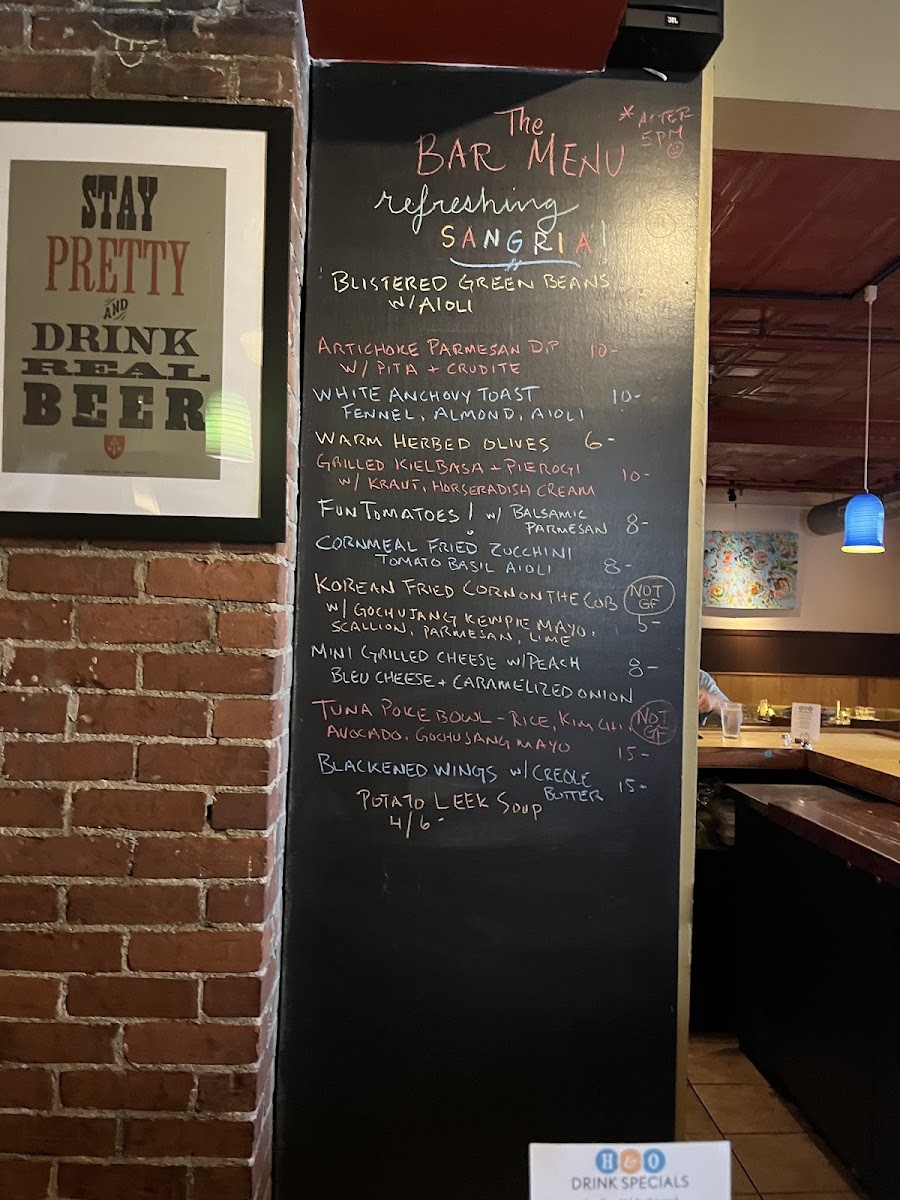 STAY
PRETTY
AND
DRINK
REAL
BEER
JBL
The
BAR MENU
* AFTER
5PM
refreshing
SANGRIA!
BLISTERED GREEN BEANS
W/ AIOLI
ARTICHOKE PARMESAN DIP 10-
W/ PITA + CRUDITE
WHITE ANCHOVY TOAST 10-
FENNEL, ALMOND, AIOLI
WARM HERBED OLIVES 6-
GRILLED KIELBASA + PIEROGI
W/ KRAUT, HORSERADISH CREAM 10-
FUN TOMATOES! W/ BALSAMIC
PARMESAN 8-
CORNMEAL FRIED ZUCCHINI
TOMATO BASIL AIOLI 8-
KOREAN FRIED CORN ON THE COB NOT GF
W/ GOCHUJANG KEWPIE MAYO, 5-
SCALLION, PARMESAN, LIME
MINI GRILLED CHEESE W/ PEACH 8-
BLEU CHEESE + CARAMELIZED ONION
TUNA POKE BOWL - RICE, KIMCHI, NOT GF
AVOCADO, GOCHUJANG MAYO 15-
BLACKENED WINGS W/ CREOLE
BUTTER 15-
POTATO LEEK SOUP
4/6-
H&O
DRINK SPECIALS